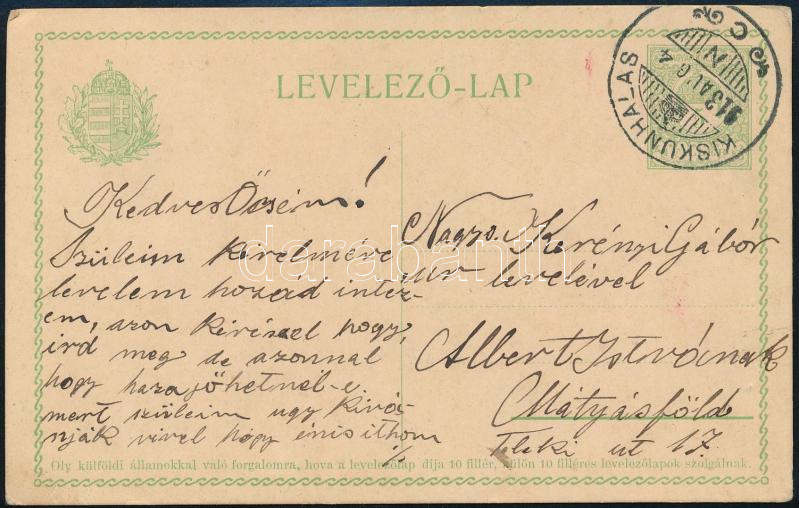 LEVELEZŐ-LAP
KISKUNHALAS
913 AUG 4
N
Kedves Öcsém!
Szüleim kérelmére
levelem hozád intéz-
em, azon kéréssel hogy,
ird meg de azonnal
hogy haza jöhetnél-e
mert szüleim ugy kivá-
nják vivel hogy én is itthon
Nagys. Kerényi Gábór
úr levelével
Albert Istvánnak
Mátyásföld
Teleki út 17.
Oly külföldi államokkal való forgalomra, hova a levelezőlap díja 10 fillér, külön 10 filléres levelezőlapok szolgálnak.
darabanth